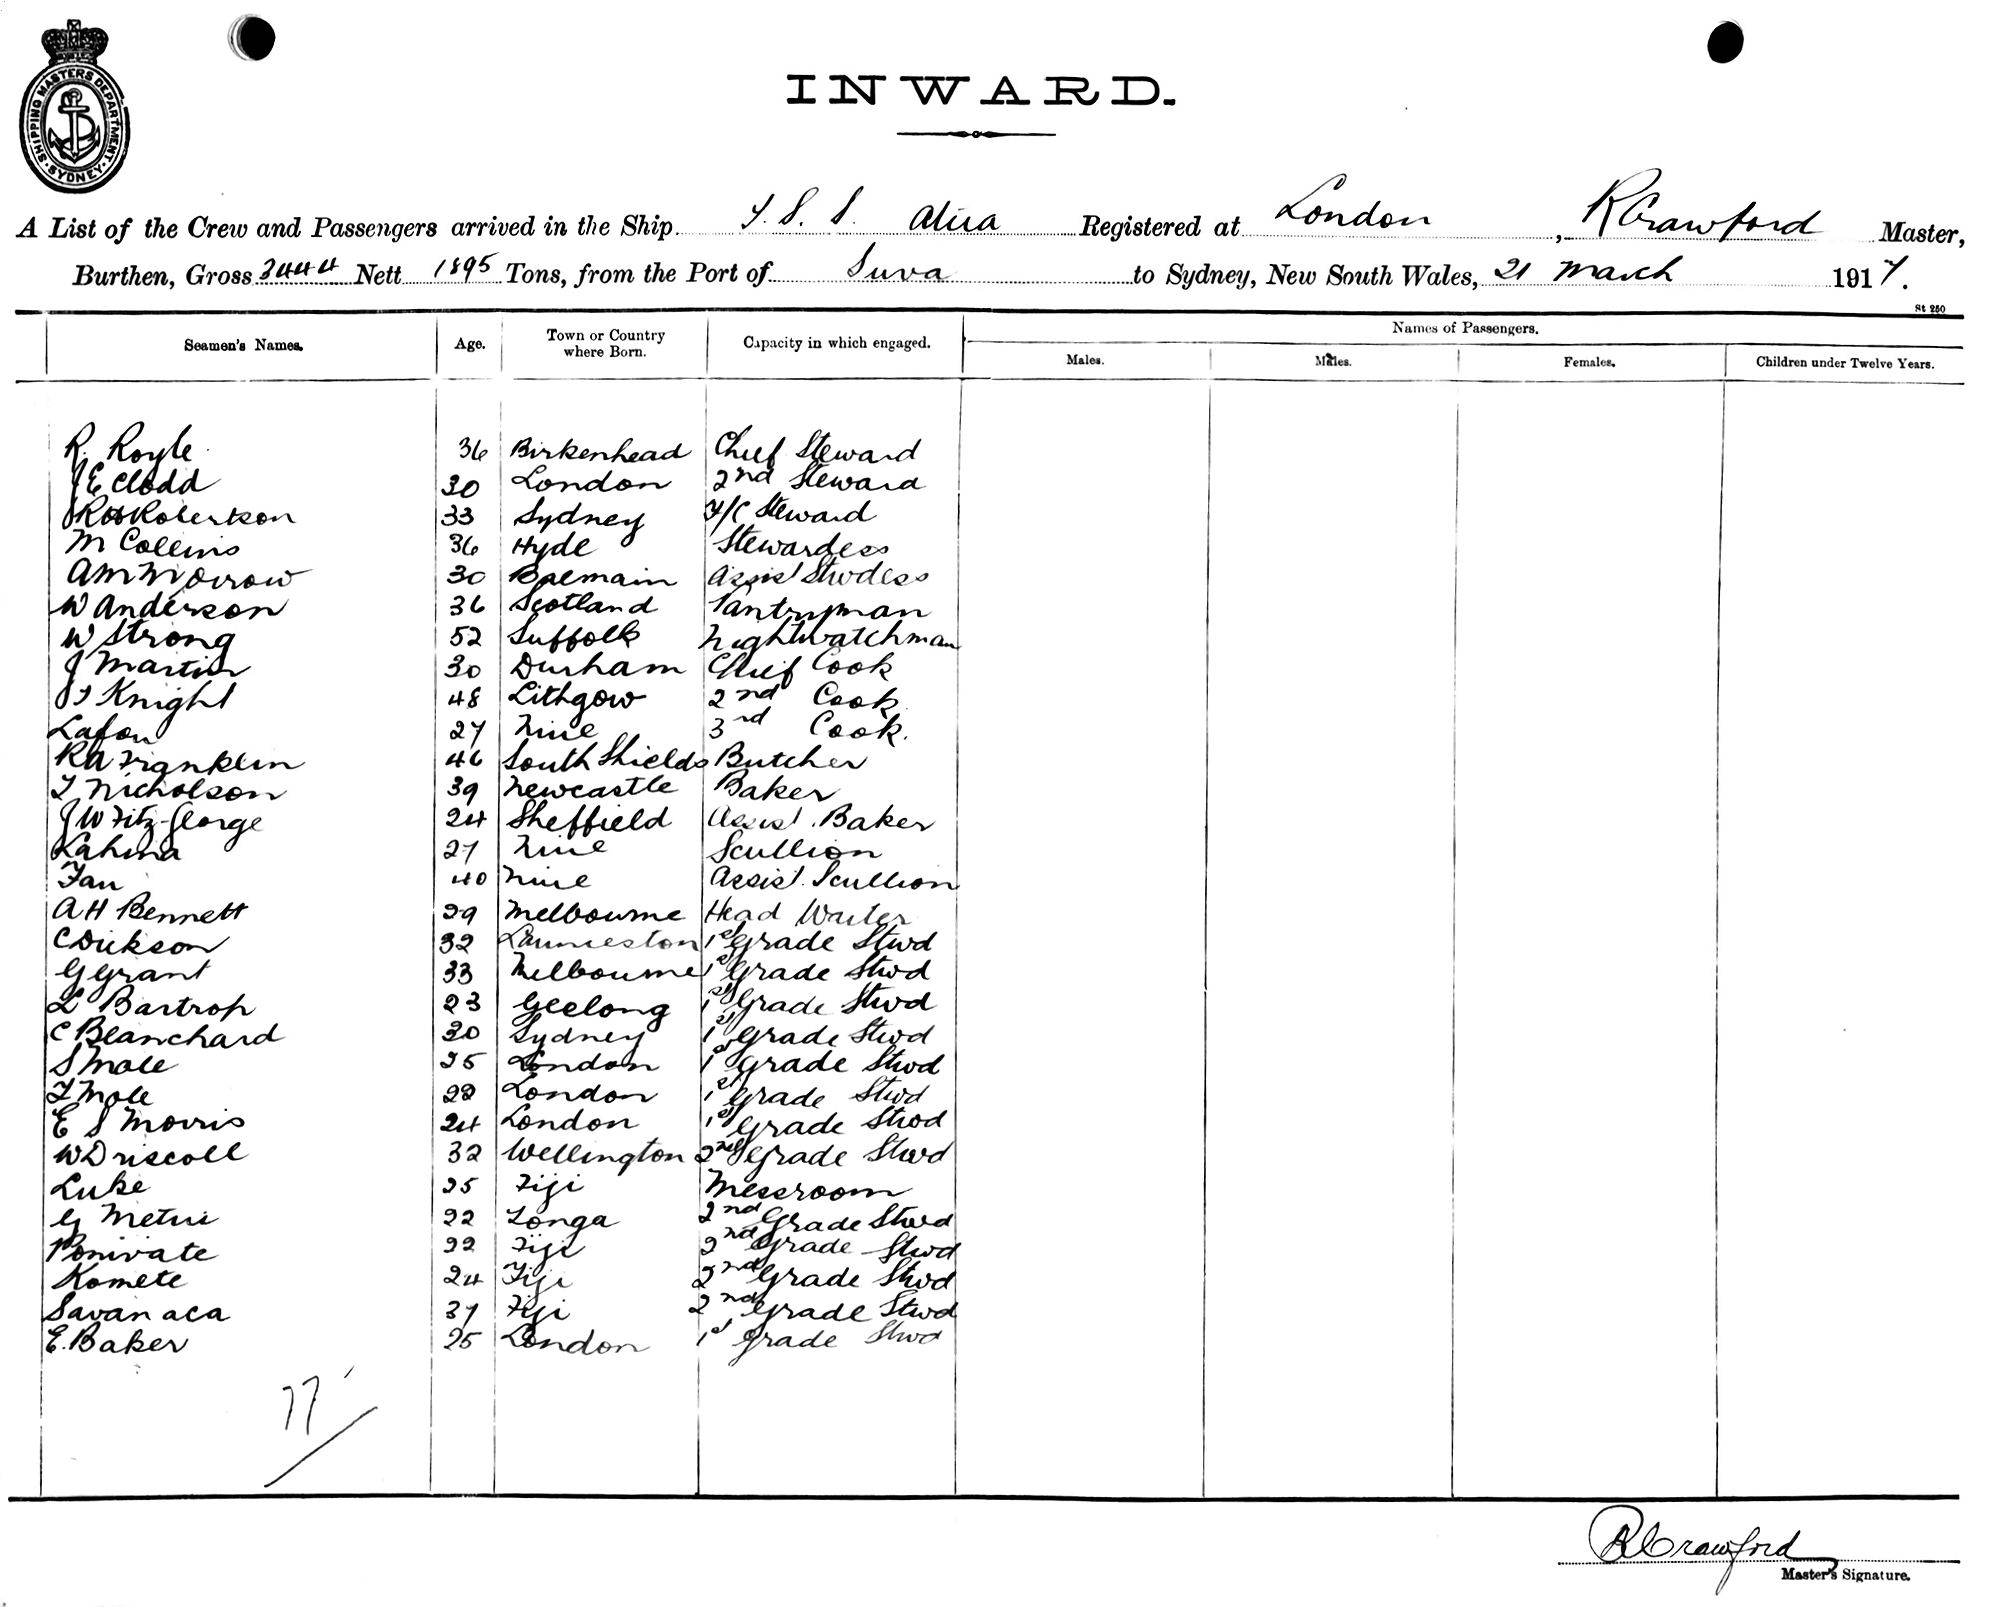 SHIPPING MASTERS DEPARTMENT · SYDNEY ·
INWARD.
A List of the Crew and Passengers arrived in the Ship T.S.S. Atua Registered at London, R Crawford Master,
Burthen, Gross 3444 Nett 1895 Tons, from the Port of Suva to Sydney, New South Wales, 21 March 1917.
St 250
Seamen's Names. Age. Town or Country where Born. Capacity in which engaged. Names of Passengers.
Males. Males. Females. Children under Twelve Years.
R. Royle 36 Birkenhead Chief Steward
J E Clodd 30 London 2nd Steward
Robertson 33 Sydney F/C Steward
M Collins 36 Hyde Stewardess
A M Morrow 30 Balmain Assist Stwdess
W Anderson 36 Scotland Pantryman
W Strong 52 Suffolk Nightwatchman
J Martin 30 Durham Chief Cook
J Knight 48 Lithgow 2nd Cook
Lafou 27 Niue 3rd Cook.
R A Franklin 46 South Shields Butcher
T Nicholson 39 Newcastle Baker
J W Fitz-George 24 Sheffield Assist. Baker
Lahina 27 Niue Scullion
Fau 40 Niue Assist. Scullion
A H Bennett 29 Melbourne Head Waiter
C Dickson 32 Launceston 1st Grade Stwd
G Grant 33 Melbourne 1st Grade Stwd
L Bartrop 23 Geelong 1st Grade Stwd
C Blanchard 30 Sydney 1st Grade Stwd
S Mole 25 London 1st Grade Stwd
T Mole 22 London 1st Grade Stwd
E S Morris 24 London 1st Grade Stwd
W Driscoll 32 Wellington 2nd Grade Stwd
Luke 25 Fiji Messroom
G Metui 22 Tonga 2nd Grade Stwd
Ponivate 22 Fiji 2nd Grade Stwd
Komete 24 Fiji 2nd Grade Stwd
Savanaca 37 Fiji 2nd Grade Stwd
E. Baker 25 London 1st Grade Stwd
77
R Crawford
Master's Signature.